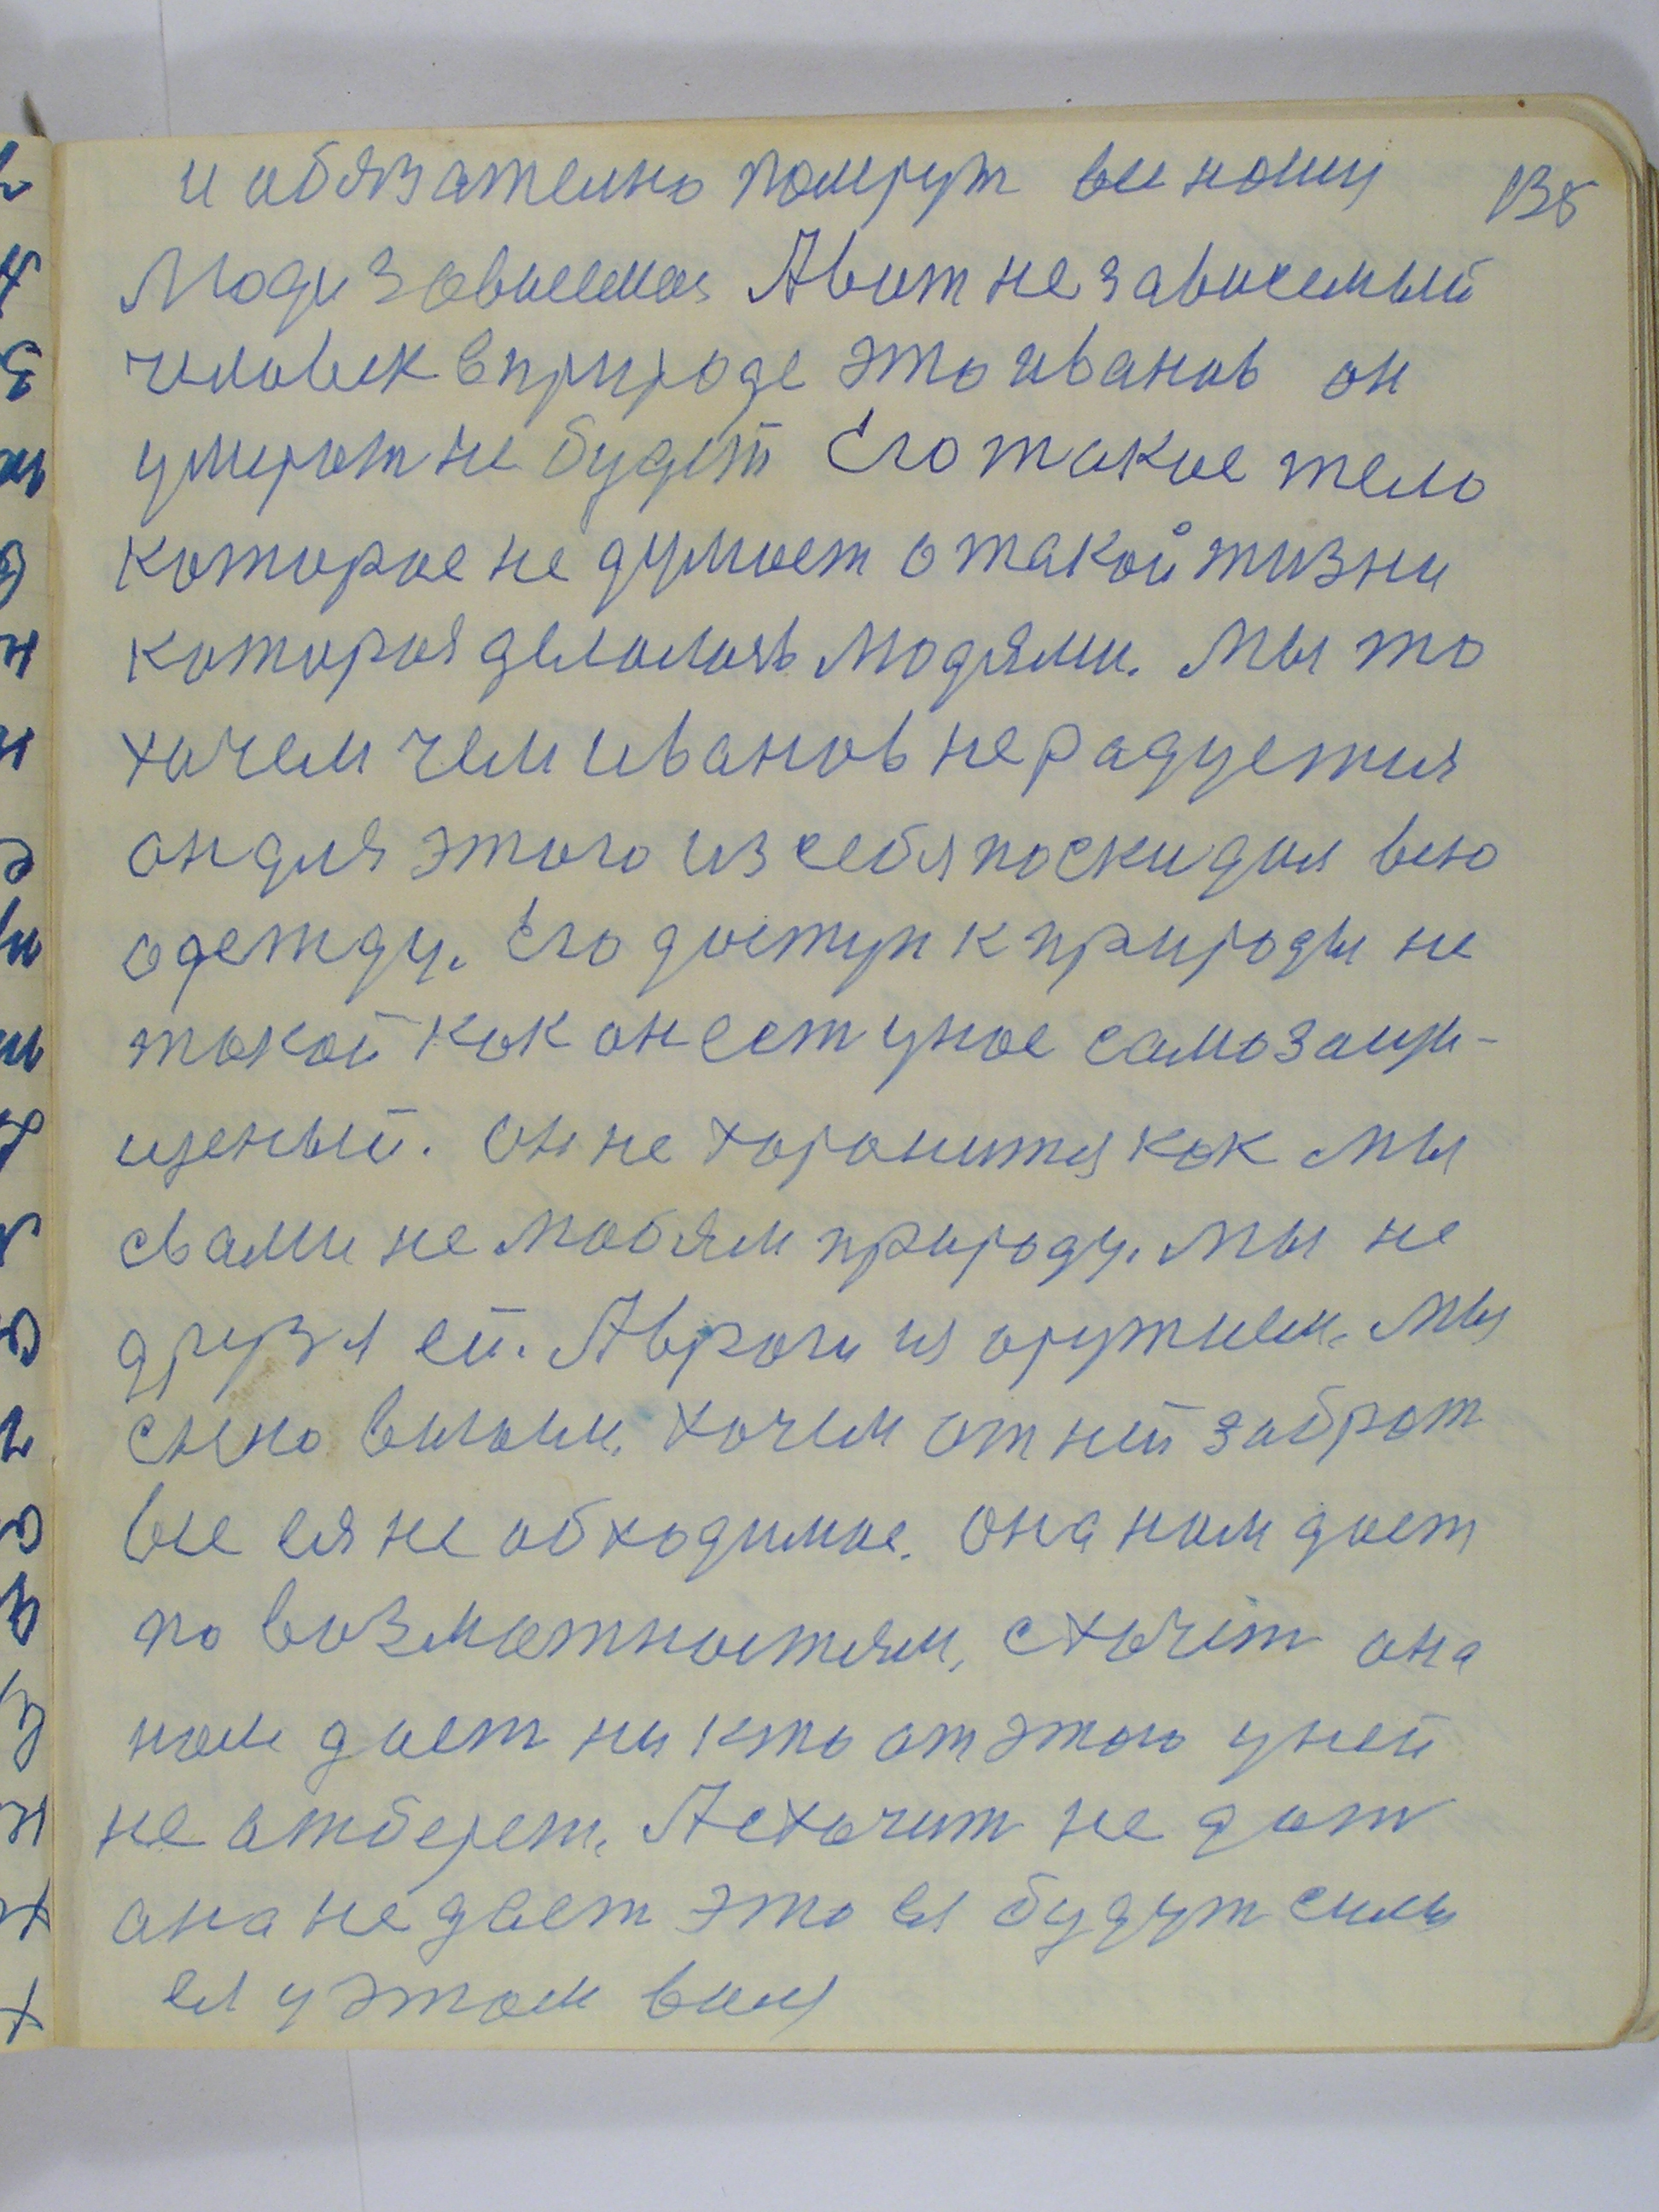 и обязателно помрут все нашы 138
Люди зависемая А вот не зависемый
человек в природе это иванов он
умерат не будет Его такое тело
которое не думает о такой жизни
которая делалась людями. Мы то
хочем чем иванов не радуется
он для этого из себя поскидал всю
одежду. Его доступ к природы не
такой как он ест уное самозащи-
щеный. Он не харанится как мы
свами не любям природу. Мы не
друзя ей. А враги ия оружием. Мы
снею воюем. хочем от ней забрат
все ея не обходимое. Она нам дает
по возможностям, схочет она
нам дает ни кто от этого уней
не отберет. А схочит не дат
она не дает это ея будут силы
ея у этом вины